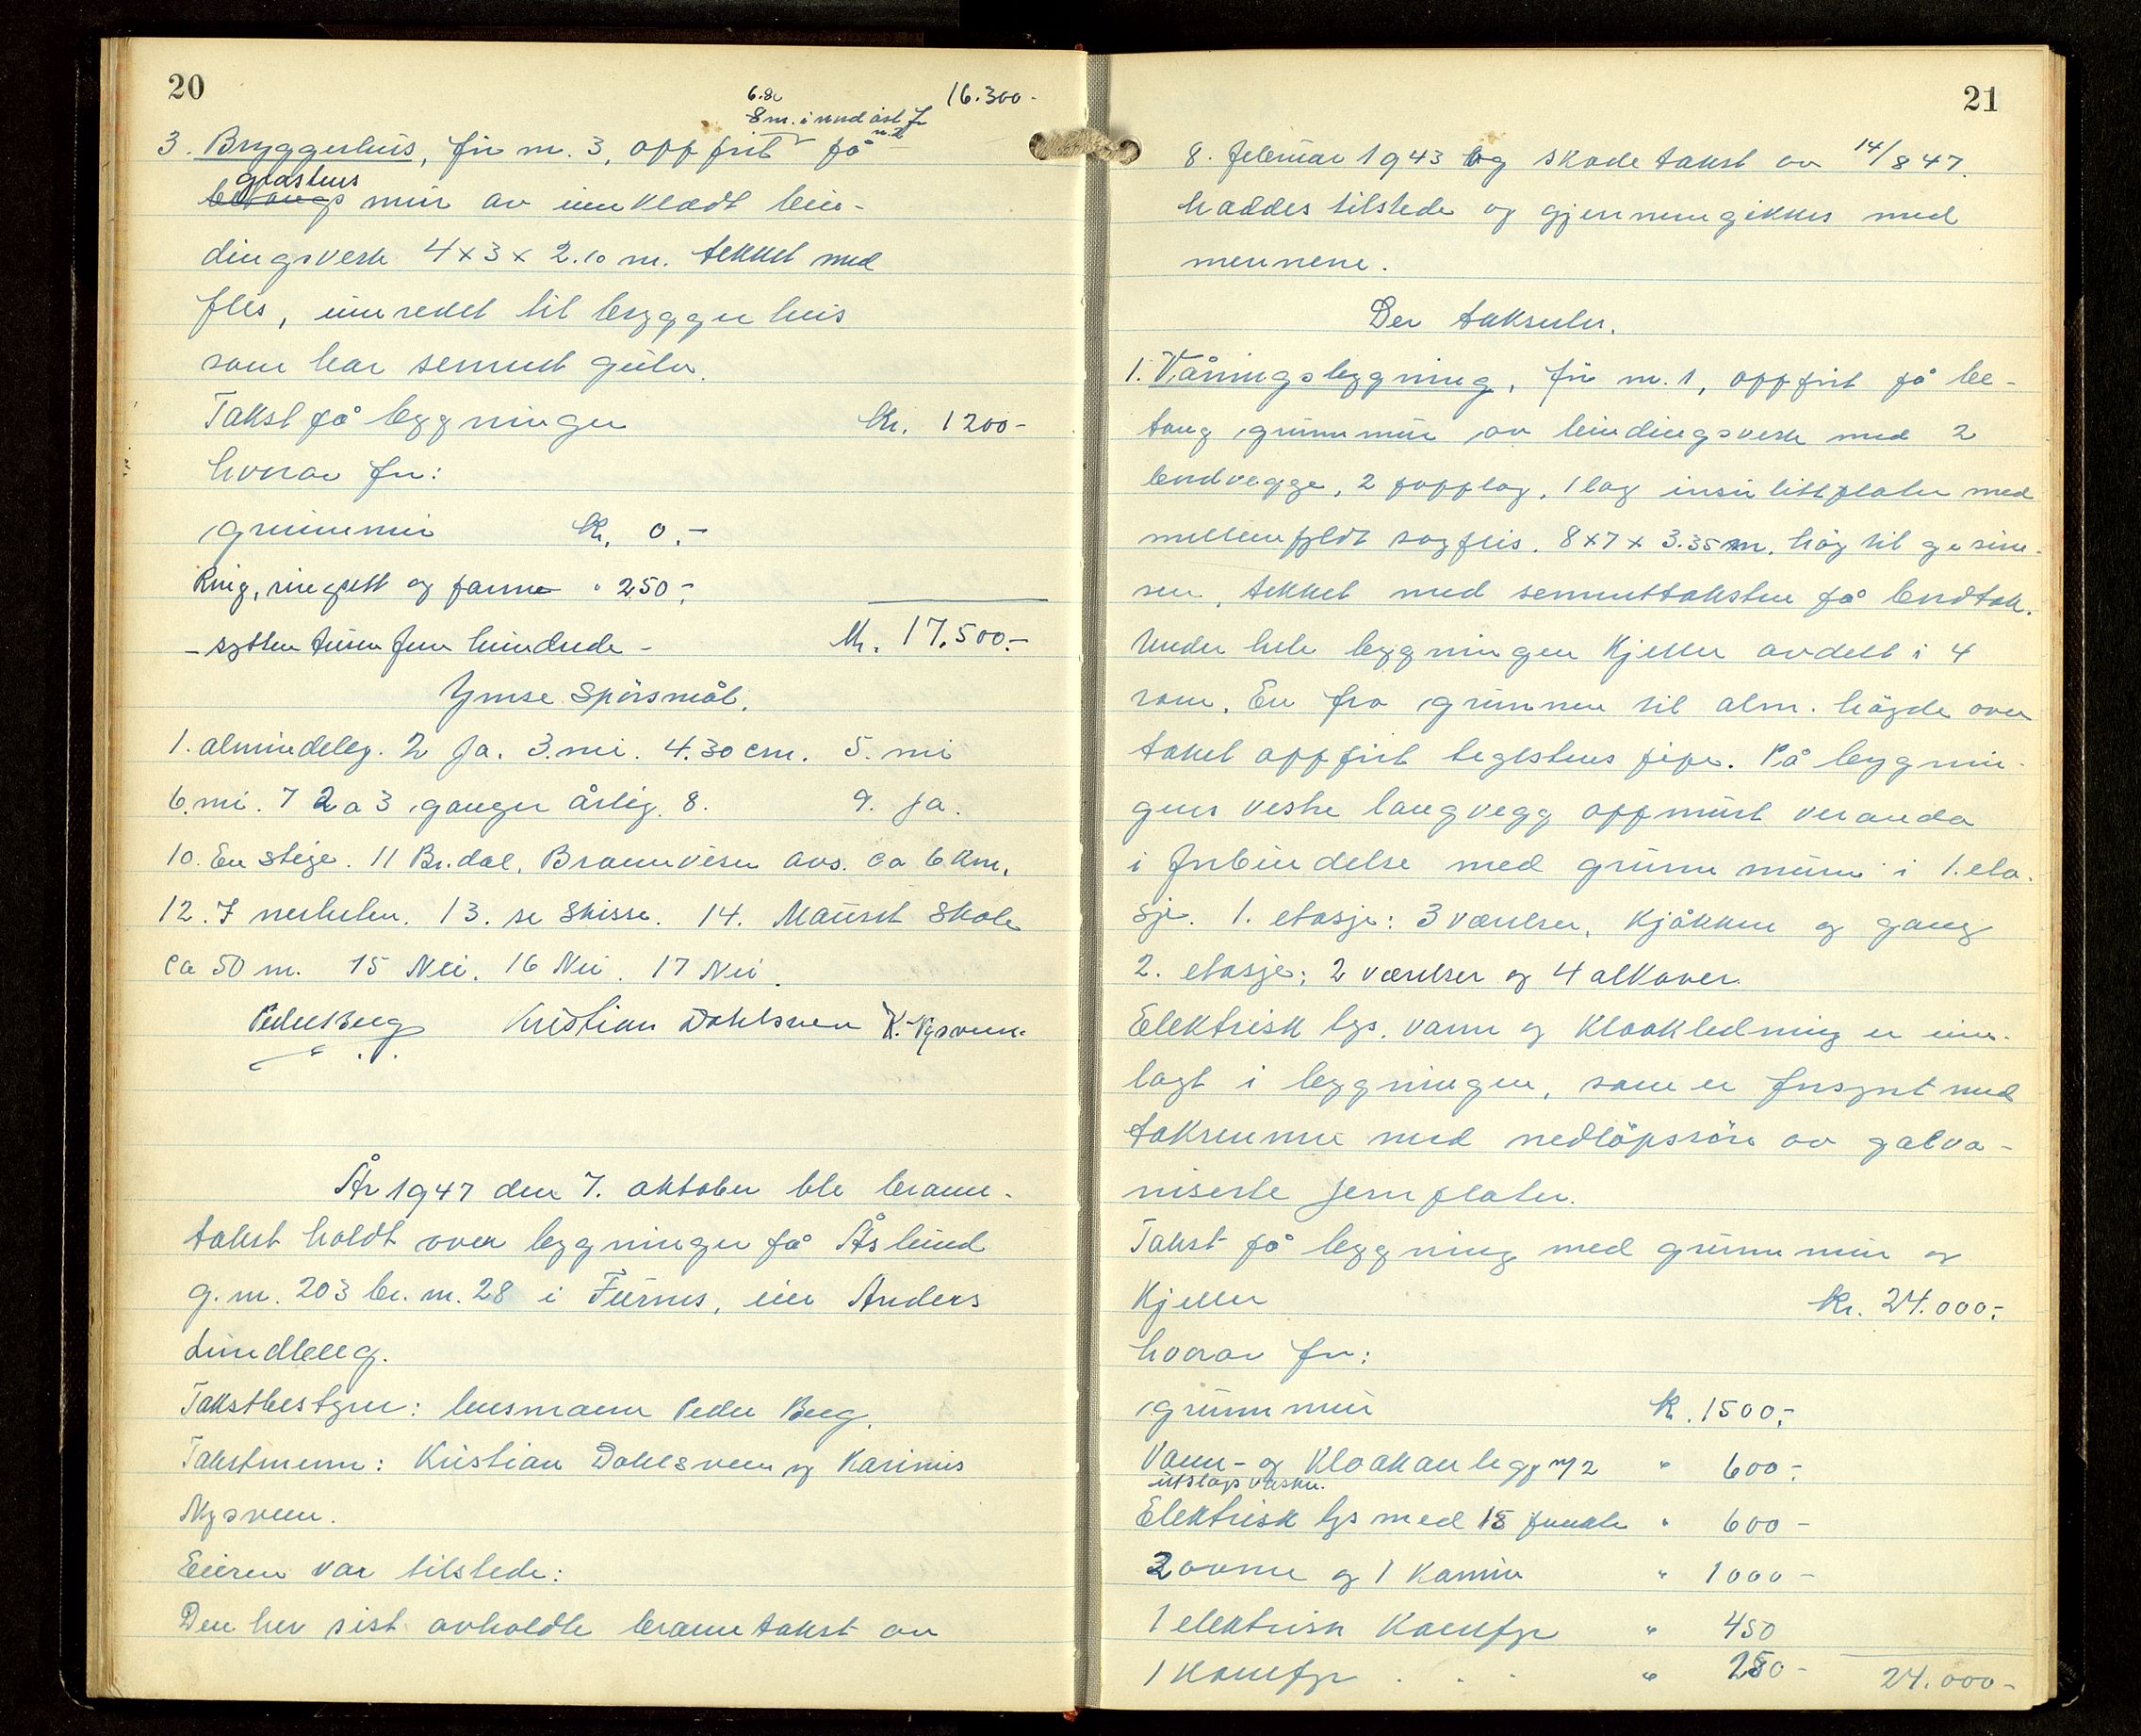 20
16.300-
6.80
8 m. i nord öst fr
n. 2
3. Bryggerhus, för nr. 3, oppfört på
gråstens
betongs mur av innkledt bin-
dingsverk 4 x 3 x 2.10 m. tekket med
flis, innredet til bryggerhus
som har sement gulv.
Takst på bygningen kr. 1200-
hvorav for:
grunnmur kr. 0.-
Ring, ringsett og panne " 250.-
- sytten tusen fem hundrede - kr. 17.500.-
Ymse Spörsmål.
1. almindelig. 2 Ja. 3. nei. 4. 30 cm. 5. nei
6. nei. 7 2 a 3 ganger årlig. 8. 9. Ja.
10. En stige. 11 Br.dal. Brannvesen avs. ca 6 km.
12. I nerheten. 13. se Skisse. 14. Maurset Skole
ca 50 m. 15 Nei. 16 Nei. 17 Nei.
Peder Berg Kristian Dahlsveen K. Nysveen.
År 1947 den 7. oktober ble brann-
takst holdt over bygninger på Åslund
g.nr. 203 br.nr. 28 i Furnes, eier Anders
Lundberg.
Takstbestyrer: lensmann Peder Berg.
Takstmenn: Kristian Dahlsveen og Karinius
Nysveen.
Eieren var tilstede:
Den her sist avholdte branntakst av
21
8. februar 1943 og skadetakst av 14/8 47.
haddes tilstede og gjennemgikkes med
mennene.
Der takseres.
1. Våningsbygning, för nr. 1, oppfört på be-
tong grunnmur av bindingsverk med 2
bordvegge, 2 papplag, 1 lag insulittplater med
mellemfyldt sagflis. 8 x 7 x 3.35 m. höy til gesim-
sen, tekket med sementtaksten på bordtak.
Under hele bygningen kjeller avdelt i 4
rom. En fra grunnen til alm. höyde over
taket oppfört teglstens pipe. På bygnin-
gens vestre langvegg oppmurt veranda
i forbindelse med grunnmuren i 1. eta-
sje. 1. etasje: 3 værelser, kjökken og gang
2. etasje: 2 værelser og 4 alkover.
Elektrisk lys, vann og kloakledning er inn-
lagt i bygningen, som er forsynt med
takrenner med nedlöpsrör av galva-
niserte jernplater.
Takst på bygning med grunnmur og
kjeller kr. 24.000.-
hvorav for:
grunnmur kr. 1500.-
Vann- og kloakanlegg m/2 " 600.-
utslagsvasker.
Elektrisk lys med 18 punkte " 600-
3 ovner og 1 kamin " 1000-
1 elektrisk komfyr " 450
1 komfyr . . . " 250- 24.000-